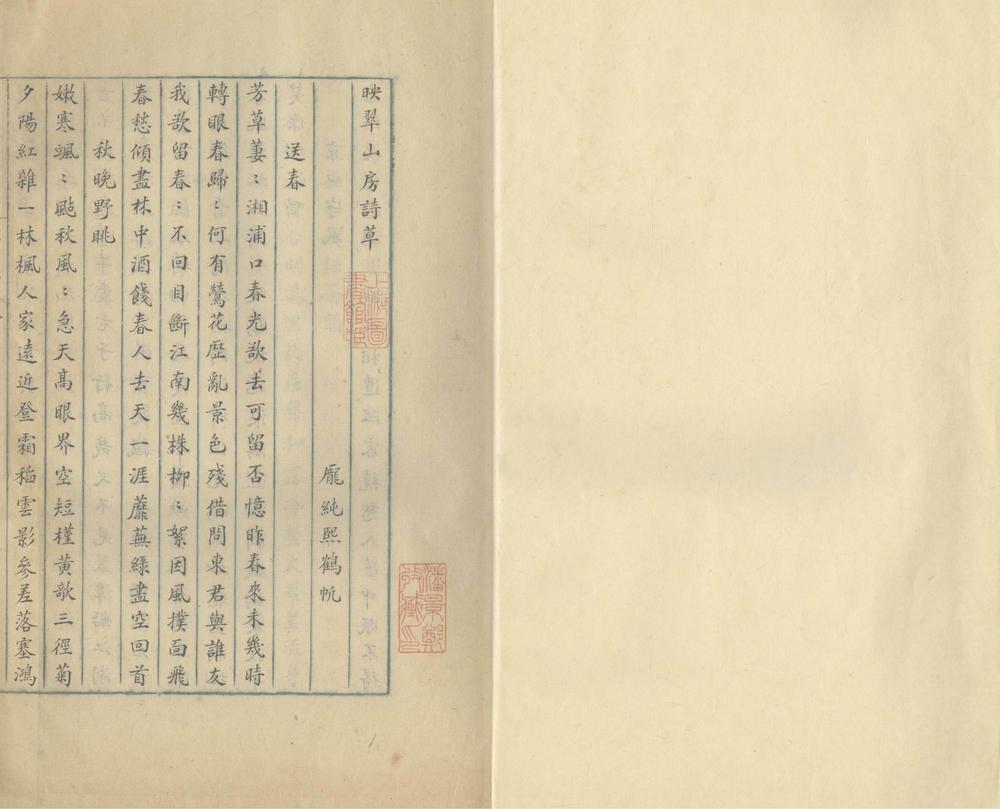 映翠山房詩草
龐純熙鶴㠶
送春
芳草萋〻湘浦口春光欲去可留否憶昨春來未幾時
轉眼春歸〻何有鶯花歷亂景色殘借問東君與誰友
我欲留春〻不回目斷江南幾株柳〻絮因風撲面飛
春愁傾盡林中酒餞春人去天一涯蘼蕪綠盡空回首
秋晚野眺
嫩寒颯〻颭秋風〻急天高眼界空短槿黃歌三徑菊
夕陽紅雜一林楓人家遠近登霜稻雲影參差落塞鴻
上海圖書館藏
潘景鄭